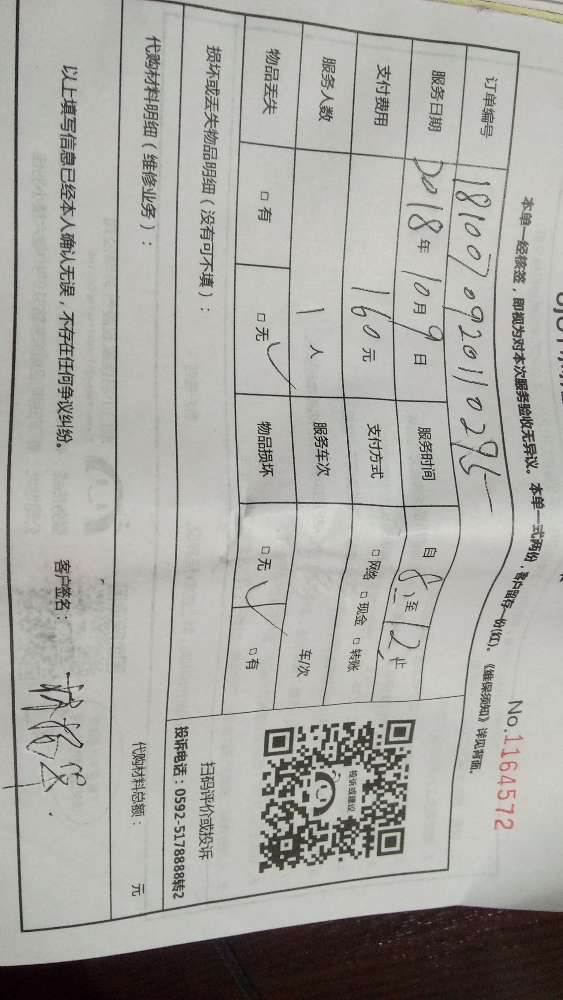 No.1164572
本单一经核签，即视为对本次服务验收无异议。本单一式两份，客户留存一份(红)。《维保须知》详见背面。
订单编号 181007092011029
服务日期 2018年10月9日 服务时间 自8至12止
支付费用 160元 支付方式 □网络 □现金 □转账
服务人数 1人 服务车次 车/次
物品丢失 □有 □无√ 物品损坏 □无√ □有
投诉或建议
扫码评价或投诉
投诉电话：0592-5178888转2
损坏或丢失物品明细（没有可不填）：
代购材料明细（维修业务）： 代购材料总额： 元
以上填写信息已经本人确认无误，不存在任何争议纠纷。 客户签名：